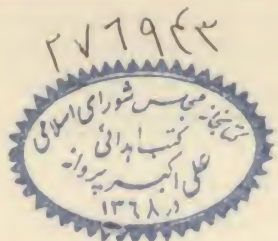 ۲۷۶۹۴۳
کتابخانه مجلس شورای اسلامی
کتب اهدائی
علی اکبر پروانه
در ۱۳۶۸